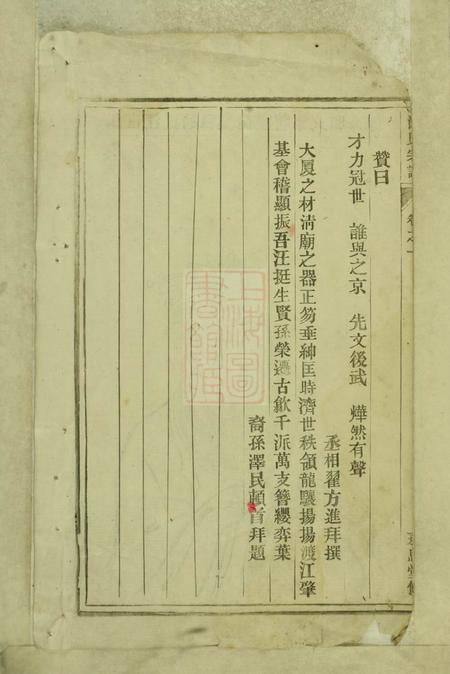 贊曰
才力冠世　誰與之京　先文後武　燁然有聲
丞相翟方進拜撰
大厦之材淸廟之器正笏垂紳匡時濟世秩領龍驤揚揚渡江肇
基會稽顯振吾汪挺生賢孫榮遷古歙千派萬支簪纓弈葉
裔孫澤民頓首拜題
上海圖書館藏